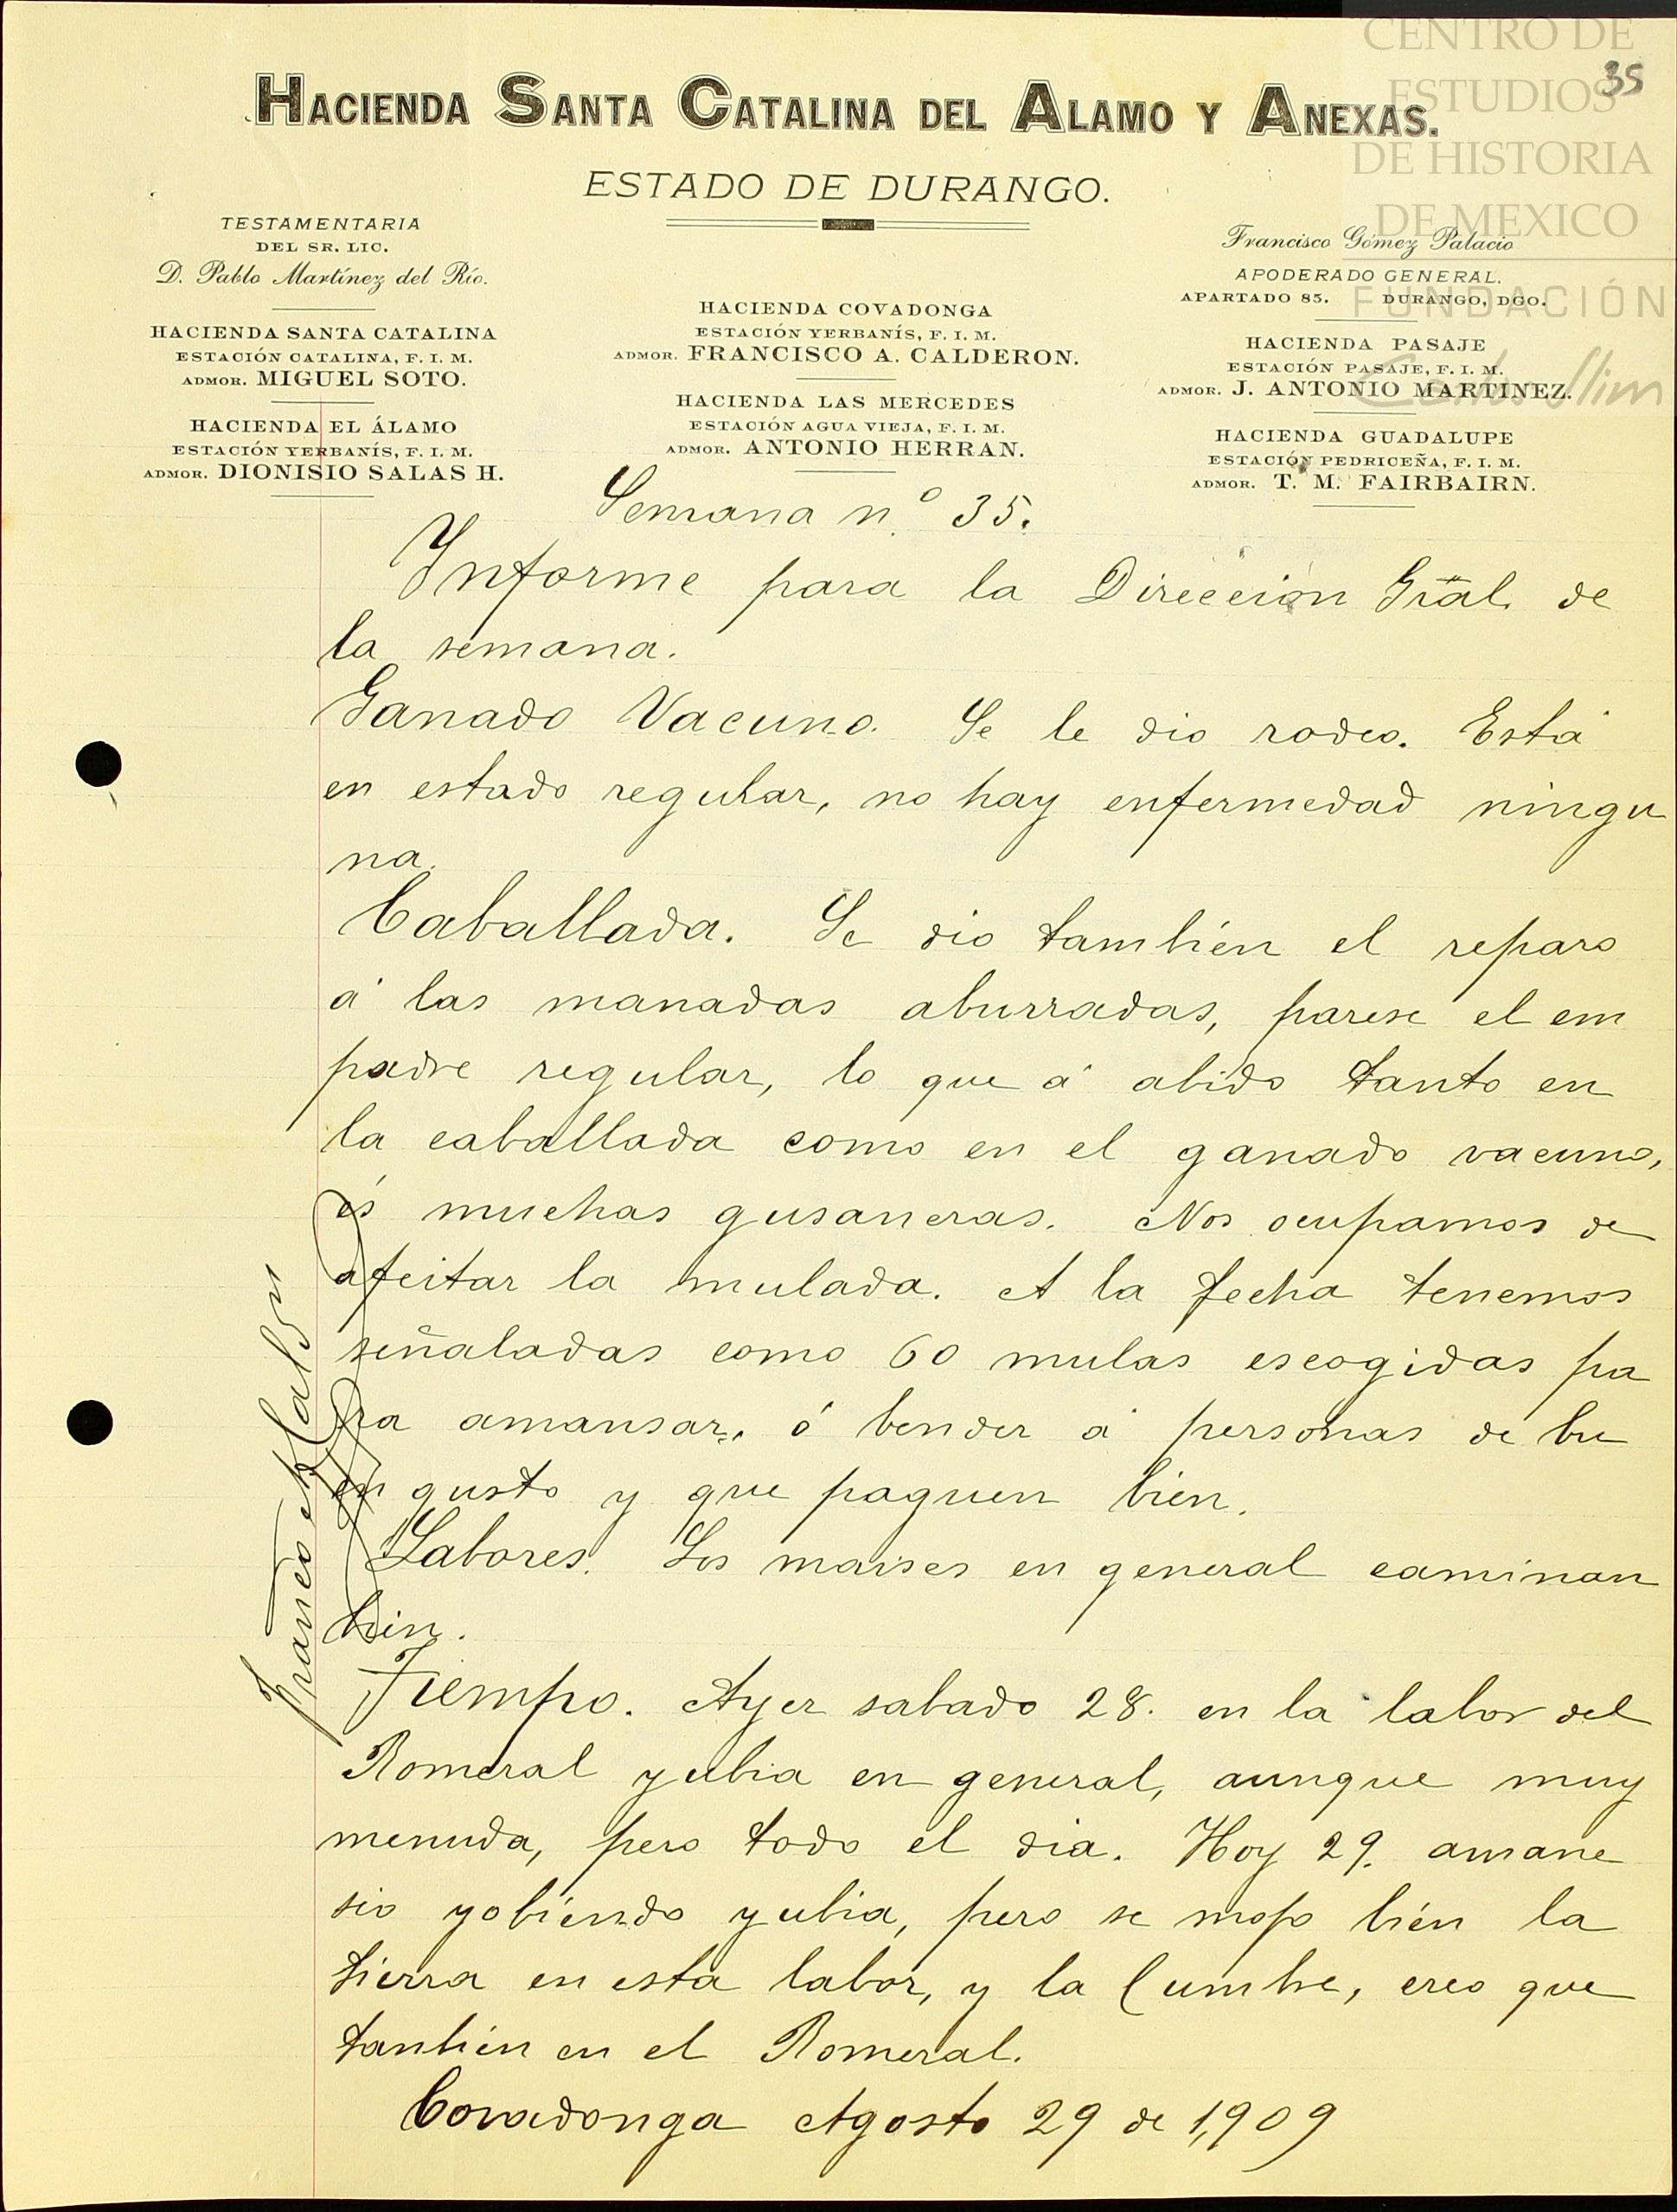 CENTRO DE
ESTUDIOS
DE HISTORIA
DE MEXICO
FUNDACIÓN
Carlos Slim
35
HACIENDA SANTA CATALINA DEL ALAMO Y ANEXAS.
ESTADO DE DURANGO.
TESTAMENTARIA
DEL SR. LIC.
D. Pablo Martínez del Río.
HACIENDA SANTA CATALINA
ESTACIÓN CATALINA, F. I. M.
ADMOR. MIGUEL SOTO.
HACIENDA EL ÁLAMO
ESTACIÓN YERBANÍS, F. I. M.
ADMOR. DIONISIO SALAS H.
HACIENDA COVADONGA
ESTACIÓN YERBANÍS, F. I. M.
ADMOR. FRANCISCO A. CALDERON.
HACIENDA LAS MERCEDES
ESTACIÓN AGUA VIEJA, F. I. M.
ADMOR. ANTONIO HERRAN.
Francisco Gómez Palacio
APODERADO GENERAL.
APARTADO 85. DURANGO, DGO.
HACIENDA PASAJE
ESTACIÓN PASAJE, F. I. M.
ADMOR. J. ANTONIO MARTINEZ.
HACIENDA GUADALUPE
ESTACIÓN PEDRICEÑA, F. I. M.
ADMOR. T. M. FAIRBAIRN.
Semana n.º 35.
Informe para la Dirección Gral. de
la semana.
Ganado Vacuno. Se le dio rodeo. Está
en estado regular, no hay enfermedad ningu
na.
Caballada. Se dio también el reparo
á las manadas aburradas, parese el em
padre regular, lo que á abido tanto en
la caballada como en el ganado vacuno,
és muchas gusaneras. Nos ocupamos de
afeitar la mulada. A la fecha tenemos
señaladas como 60 mulas escogidas pa
ra amansar, ó bender á personas de bu
en gusto y que paguen bien.
Labores. Los maises en general caminan
bien.
Tiempo. Ayer sabado 28. en la labor del
Romeral yubia en general, aunque muy
menuda, pero todo el dia. Hoy 29. amane
sio yobiendo yubia, pero se mojo bién la
tierra en esta labor, y la Cumbre, creo que
tanbién en el Romeral.
Covadonga Agosto 29 de 1,909